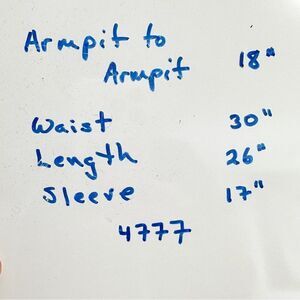 Armpit to
Armpit 18"
Waist 30"
Length 26"
Sleeve 17"
4777